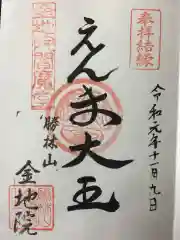 奉拝結縁
令和元年十一月九日
えんま大王
勝林山
金地院